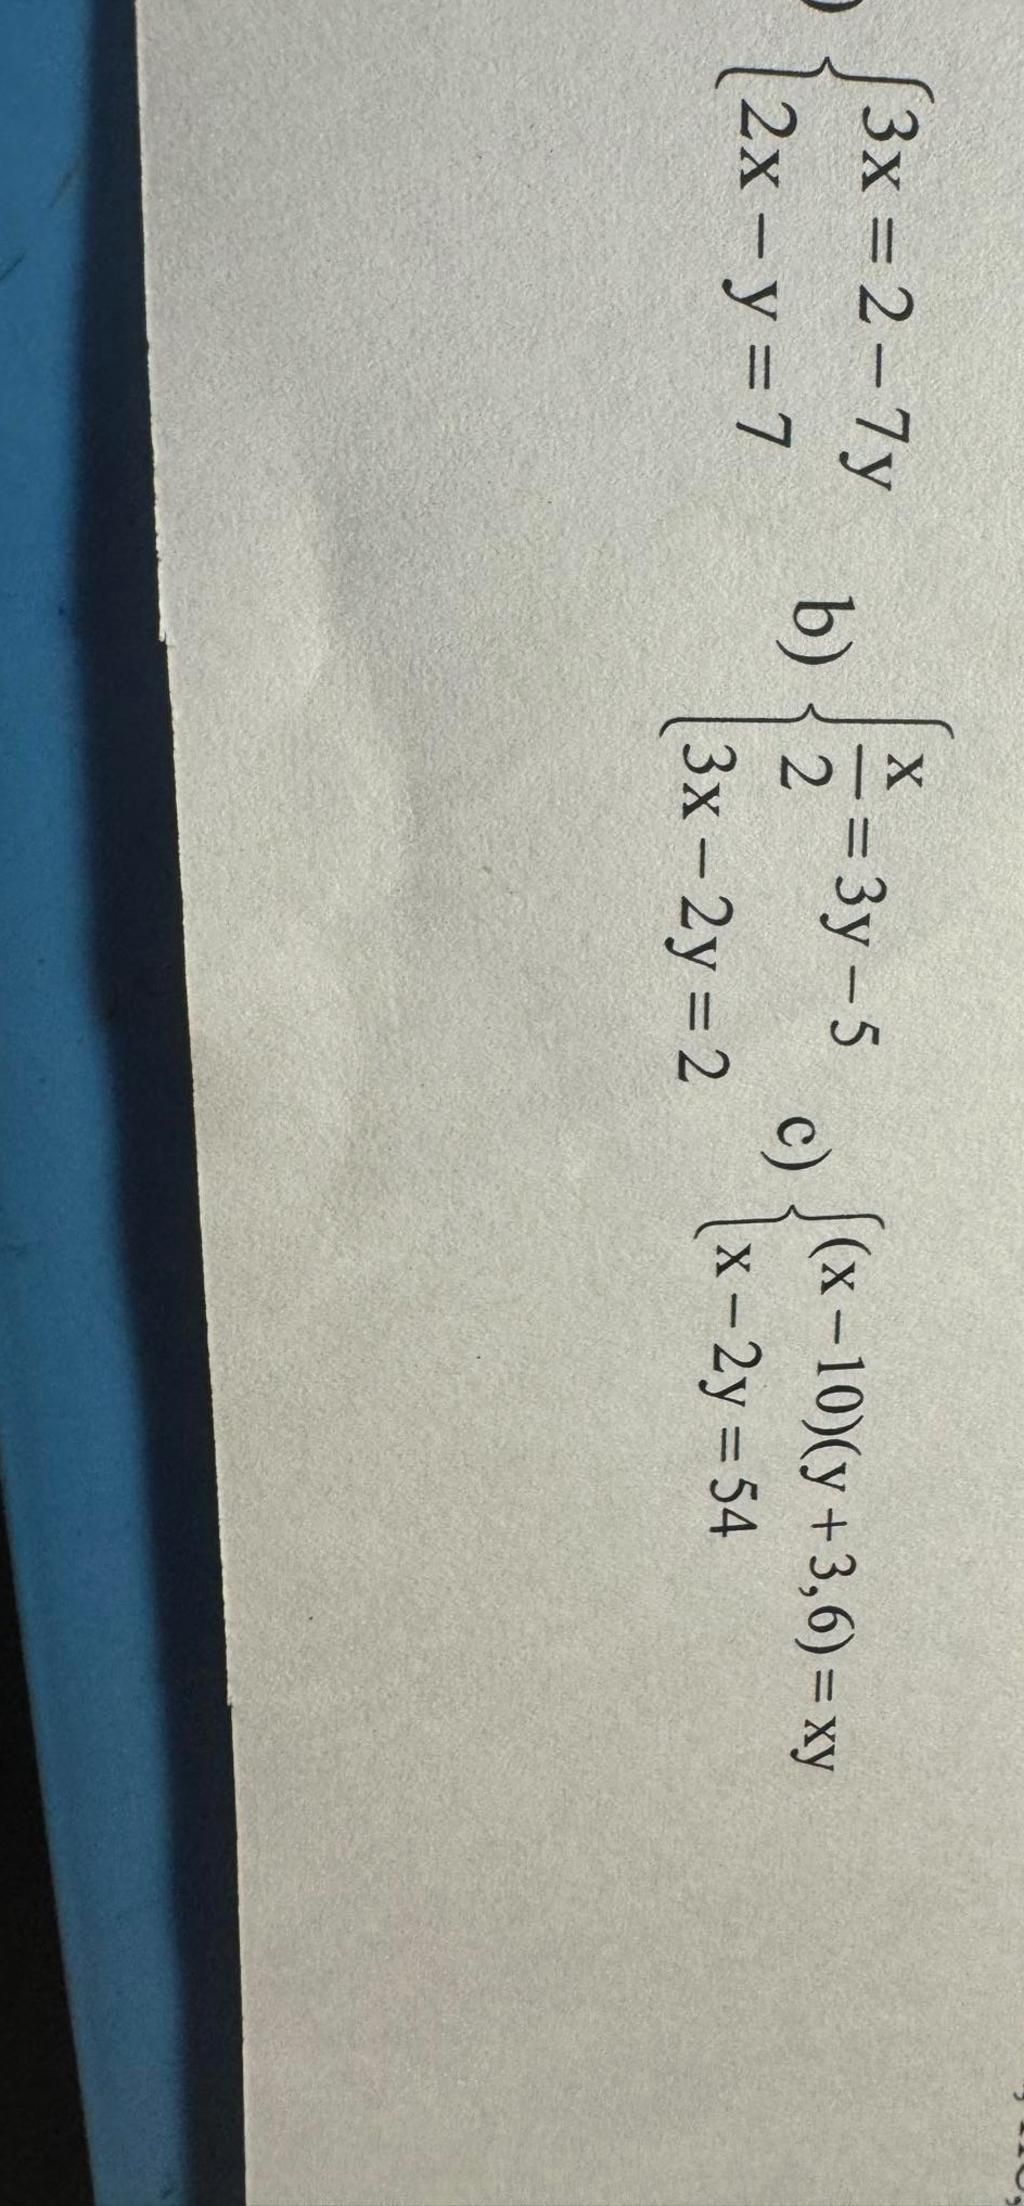 ) { 3x = 2 – 7y
2x – y = 7
b) { x/2 = 3y – 5
3x – 2y = 2
c) { (x – 10)(y + 3,6) = xy
x – 2y = 54